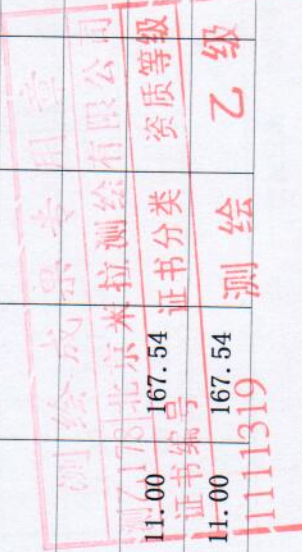 测绘成果专用章
北京米拉测绘有限公司
证书编号 证书分类 资质等级
11111319 测绘 乙级
11.00 167.54
11.00 167.54